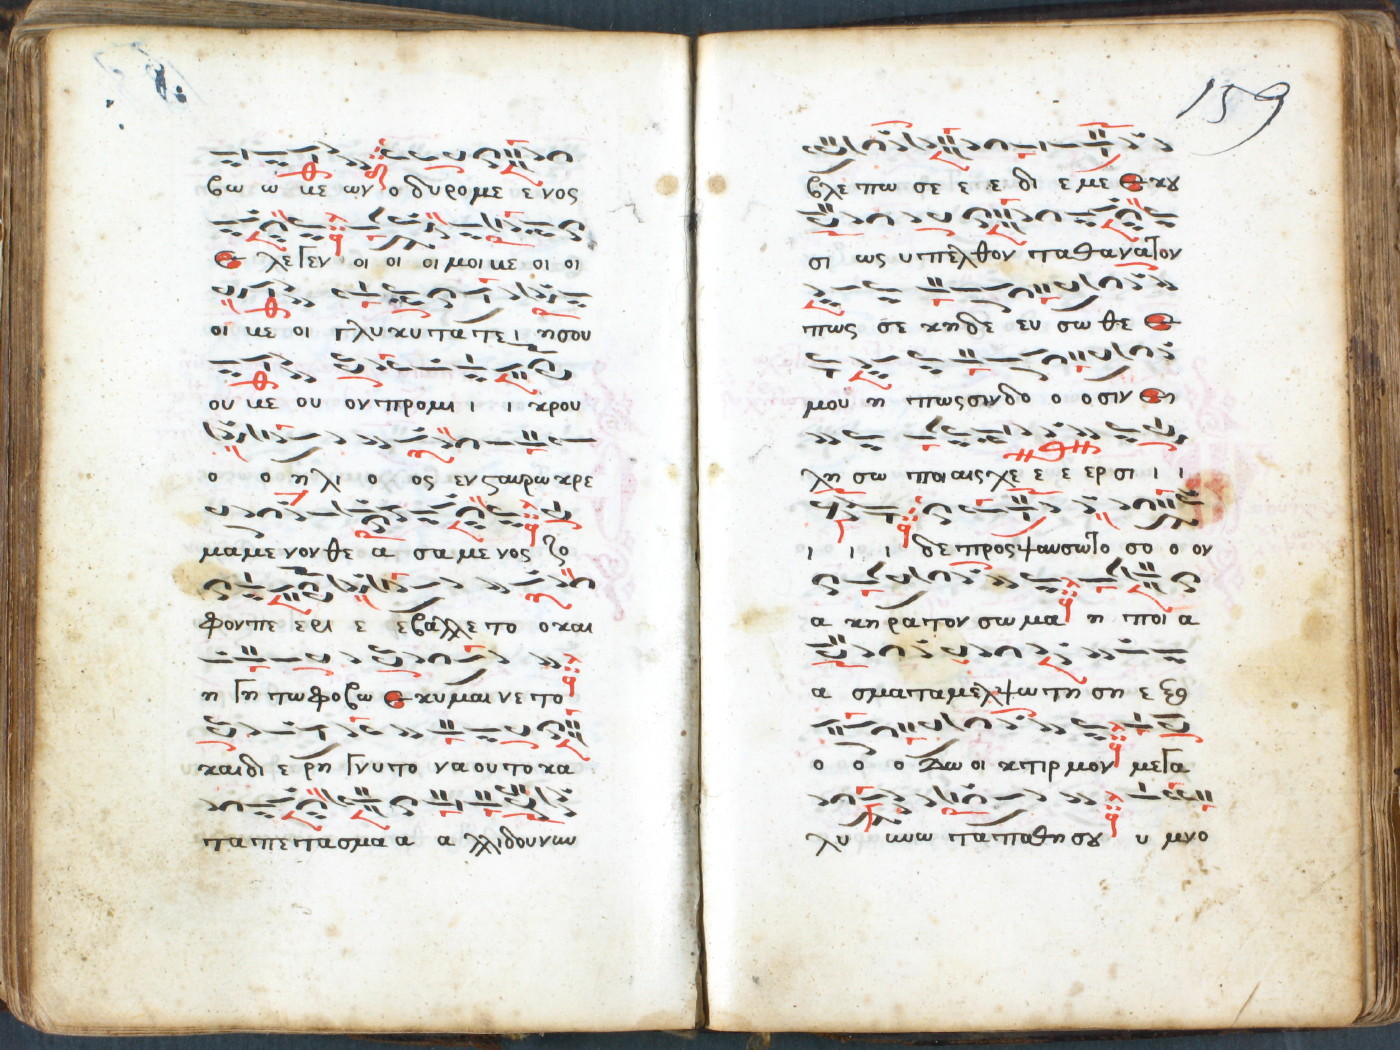 βω ω με ων ο δυρομε ε νος
ε λεγεν οι οι οι μοι με οι οι
οι με οι γλυκυτατε ι ησου
ου με ου ον προμι ι ι κρου
ο ο η λι ο ος εν σταυρω κρε
μαμενον θε α σαμενος ζο
φον πε ερι ε εβαλλετο ο και
η γη τω φοβω ε κυμαινετο
και δι ε ρηγνυτο ναου το κα
ταπετασμα α α λλ ιδου νυν
159
βλεπω σε ε ε δι ε με ε κου
σι ως υπελθοντα θανατον
πως σε κηδευσω θε ε
μου η πως σινδο ο οσιν ει
λη σω ποιαις χε ε ε ερσι ι ι
ι ι ι δε προσψαυσω το σο ο ον
α κηρατον σωμα η ποι α
α σματα μελψω τη ση ε ξο
ο ο ο δω οικτιρμον μεγα
λυ υνω τα παθη σου υ μνο